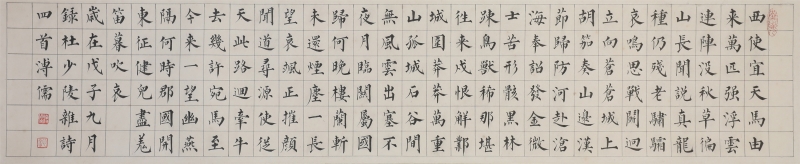 西使宜天馬由
來萬匹强浮雲
連陣没秋草徧
山長聞說真龍
種仍殘老驌驦
哀鳴思戰鬭迥
立向蒼蒼城上
胡笳奏山邊漢
節歸防河赴滄
海奉詔發金微
士苦形骸黑林
踈鳥獸稀那堪
往來戍恨解鄴
城圍莽莽萬重
山孤城石谷間
無風雲出塞不
夜月臨關屬國
歸何晚樓蘭斬
未還煙塵一長
望衰颯正摧顏
聞道尋源使從
天此路迴牽牛
去幾許宛馬至
今來一望幽燕
隔何時郡國開
東征健兒盡羗
笛暮吹哀
歲在戊子九月
錄杜少陵雜詩
四首溥儒